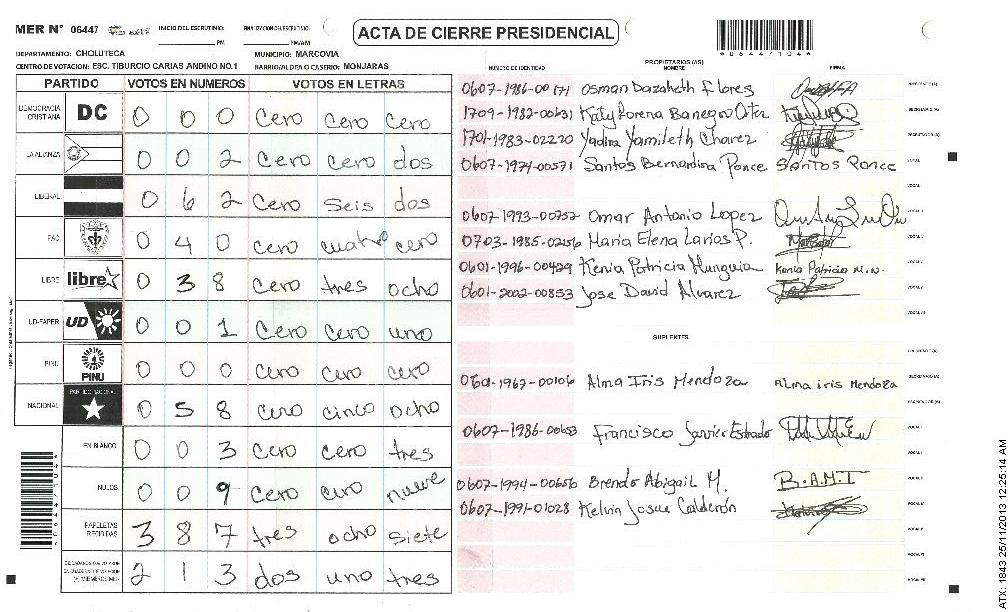 MER N° 06447
INICIO DEL ESCRUTINIO: PM
FINALIZACION DEL ESCRUTINIO: PM/AM
ACTA DE CIERRE PRESIDENCIAL
*06447104*
DEPARTAMENTO: CHOLUTECA
MUNICIPIO: MARCOVIA
CENTRO DE VOTACION: ESC. TIBURCIO CARIAS ANDINO NO.1
BARRIO/ALDEA O CASERIO: MONJARAS
PARTIDO VOTOS EN NUMEROS VOTOS EN LETRAS
DEMOCRACIA CRISTIANA DC 0 0 0 Cero Cero Cero
LA ALIANZA 0 0 2 Cero Cero dos
LIBERAL 0 6 2 Cero seis dos
FAC 0 4 0 Cero cuatro cero
LIBRE libre 0 3 8 Cero tres ocho
UD-FAPER UD 0 0 1 Cero Cero uno
PINU PINU 0 0 0 Cero Cero cero
NACIONAL PARTIDO NACIONAL 0 5 8 Cero cinco ocho
EN BLANCO 0 0 3 Cero Cero tres
NULOS 0 0 9 Cero cero nueve
PAPELETAS RECIBIDAS 3 8 7 tres ocho siete
2 1 3 dos uno tres
NUMERO DE IDENTIDAD
PROPIETARIOS (AS)
NOMBRE
FIRMA
0607-1986-00171 Osman Dazaheth Flores
1709-1982-00631 Katy Lorena Banegas Ortez
1701-1983-02220 Yadira Yamileth Chavez
0607-1974-00571 Santos Bernardina Ponce SANTOS PONCE VOCAL
VOCAL
0607-1993-00752 Omar Antonio Lopez
0703-1985-02156 Maria Elena Larios P.
0601-1996-00429 Kenia Patricia Munguia Kenia Patricia M.N.
0601-2002-00853 Jose David Alvarez
SUPLENTES
0601-1967-00106 Alma Iris Mendoza Alma iris Mendoza
0607-1986-00653 Francisco Javier Estrada
0607-1994-00656 Brenda Abigail M. B.A.M.T
0607-1991-01028 Kelvin Josue Calderón
*06447104*
ATX: 1843 25/11/2013 12:25:14 AM